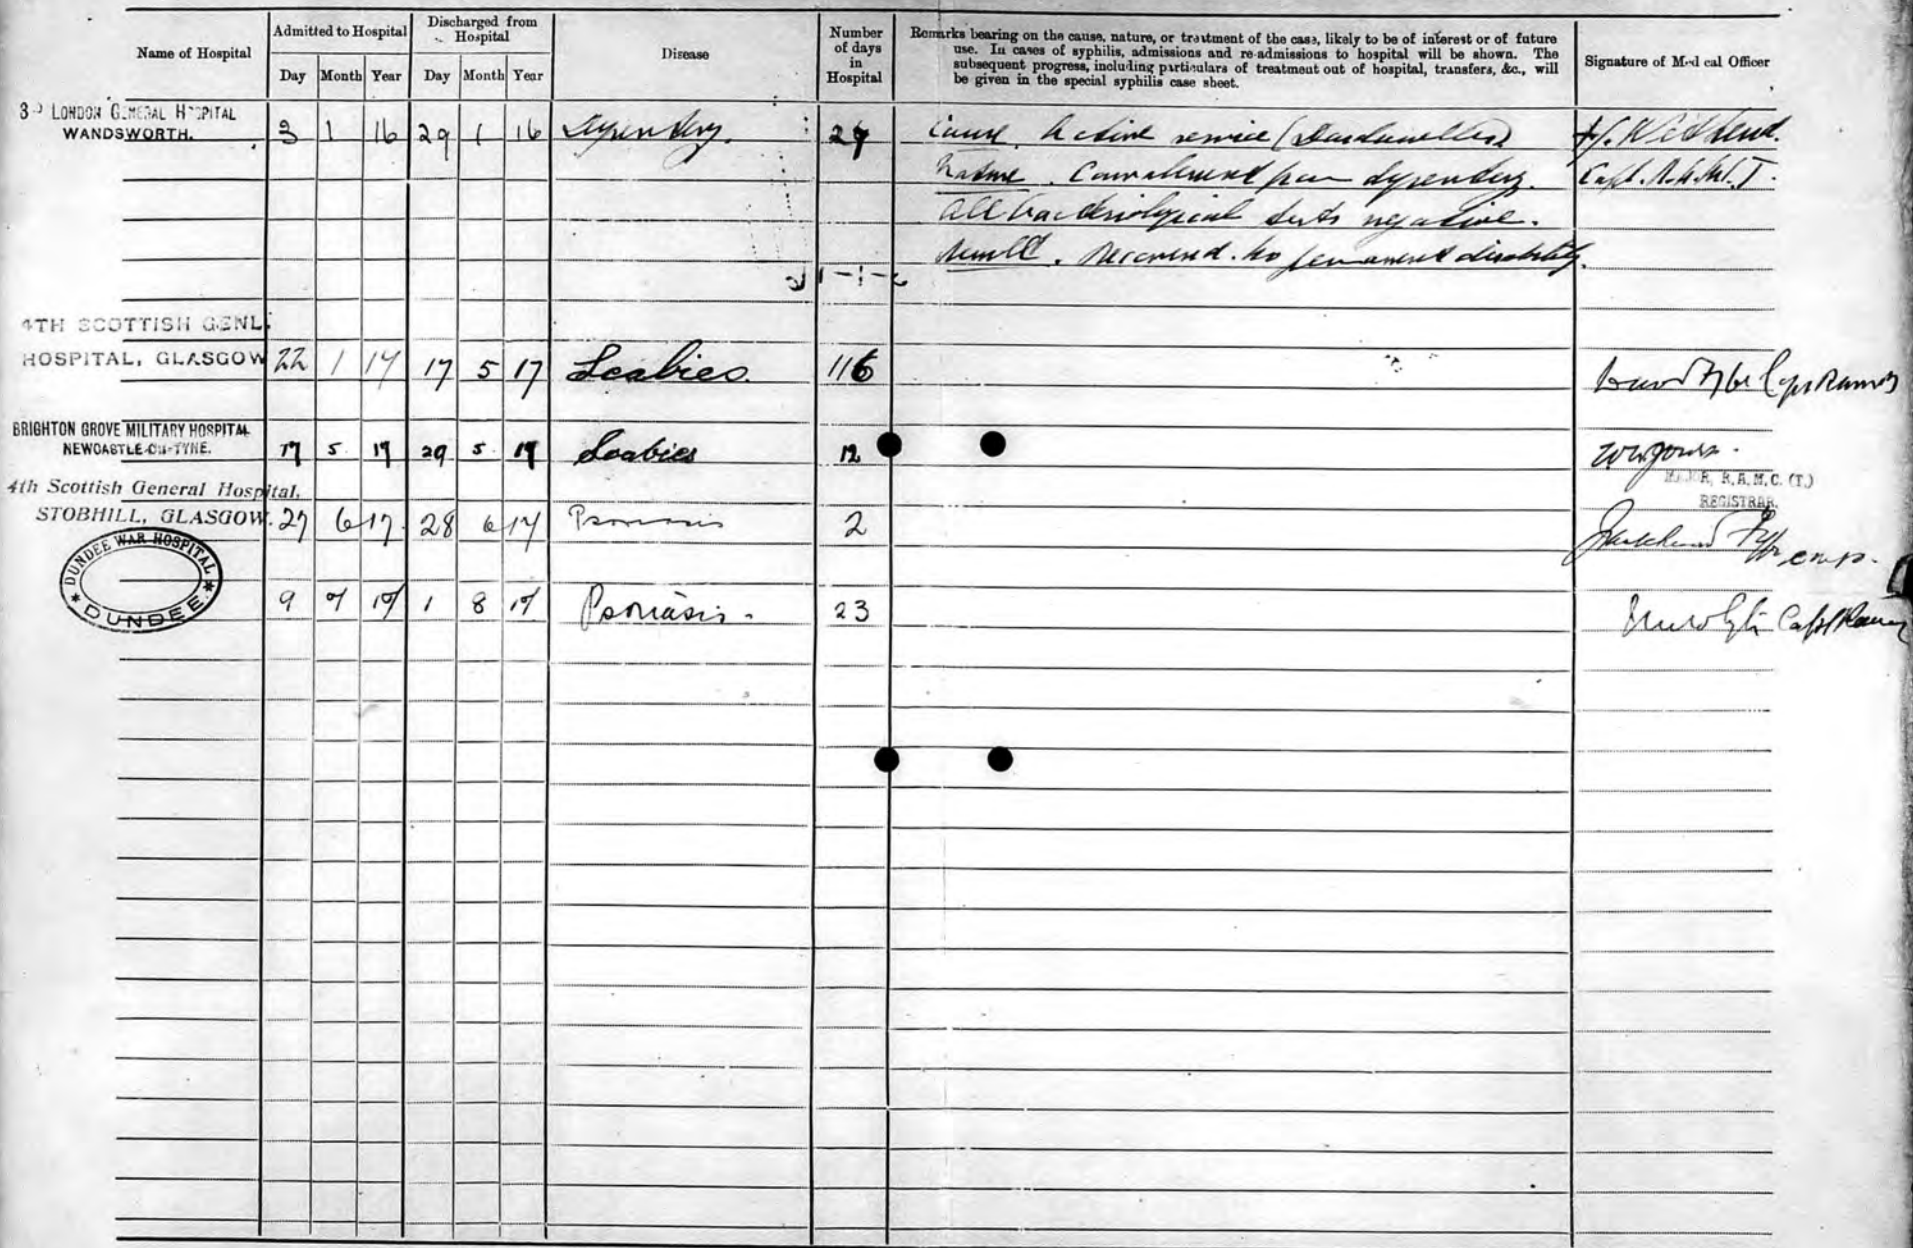 Name of Hospital
Admitted to Hospital
Discharged from Hospital
Day Month Year Day Month Year
Disease
Number of days in Hospital
Remarks bearing on the cause, nature, or treatment of the case, likely to be of interest or of future
use. In cases of syphilis, admissions and re-admissions to hospital will be shown. The
subsequent progress, including particulars of treatment out of hospital, transfers, &c., will
be given in the special syphilis case sheet.
Signature of Medical Officer
3RD LONDON GENERAL HOSPITAL
WANDSWORTH. 3 1 16 29 1 16 Dysentery. 27 Cause. Active service (Dardanelles)
Nature. Convalescent from dysentery. Capt. R.A.M.C.T.
All bacteriological tests negative.
Result. Recovered. No permanent disability.
4TH SCOTTISH GENL.
HOSPITAL, GLASGOW 22 1 17 17 5 17 Scabies. 116
BRIGHTON GROVE MILITARY HOSPITAL
NEWCASTLE-ON-TYNE. 17 5 17 29 5 17 Scabies 12
MAJOR, R.A.M.C. (T.)
REGISTRAR.
4th Scottish General Hospital,
STOBHILL, GLASGOW. 27 6 17 28 6 17 Psoriasis 2
DUNDEE WAR HOSPITAL
DUNDEE
9 7 17 1 8 17 Psoriasis. 23